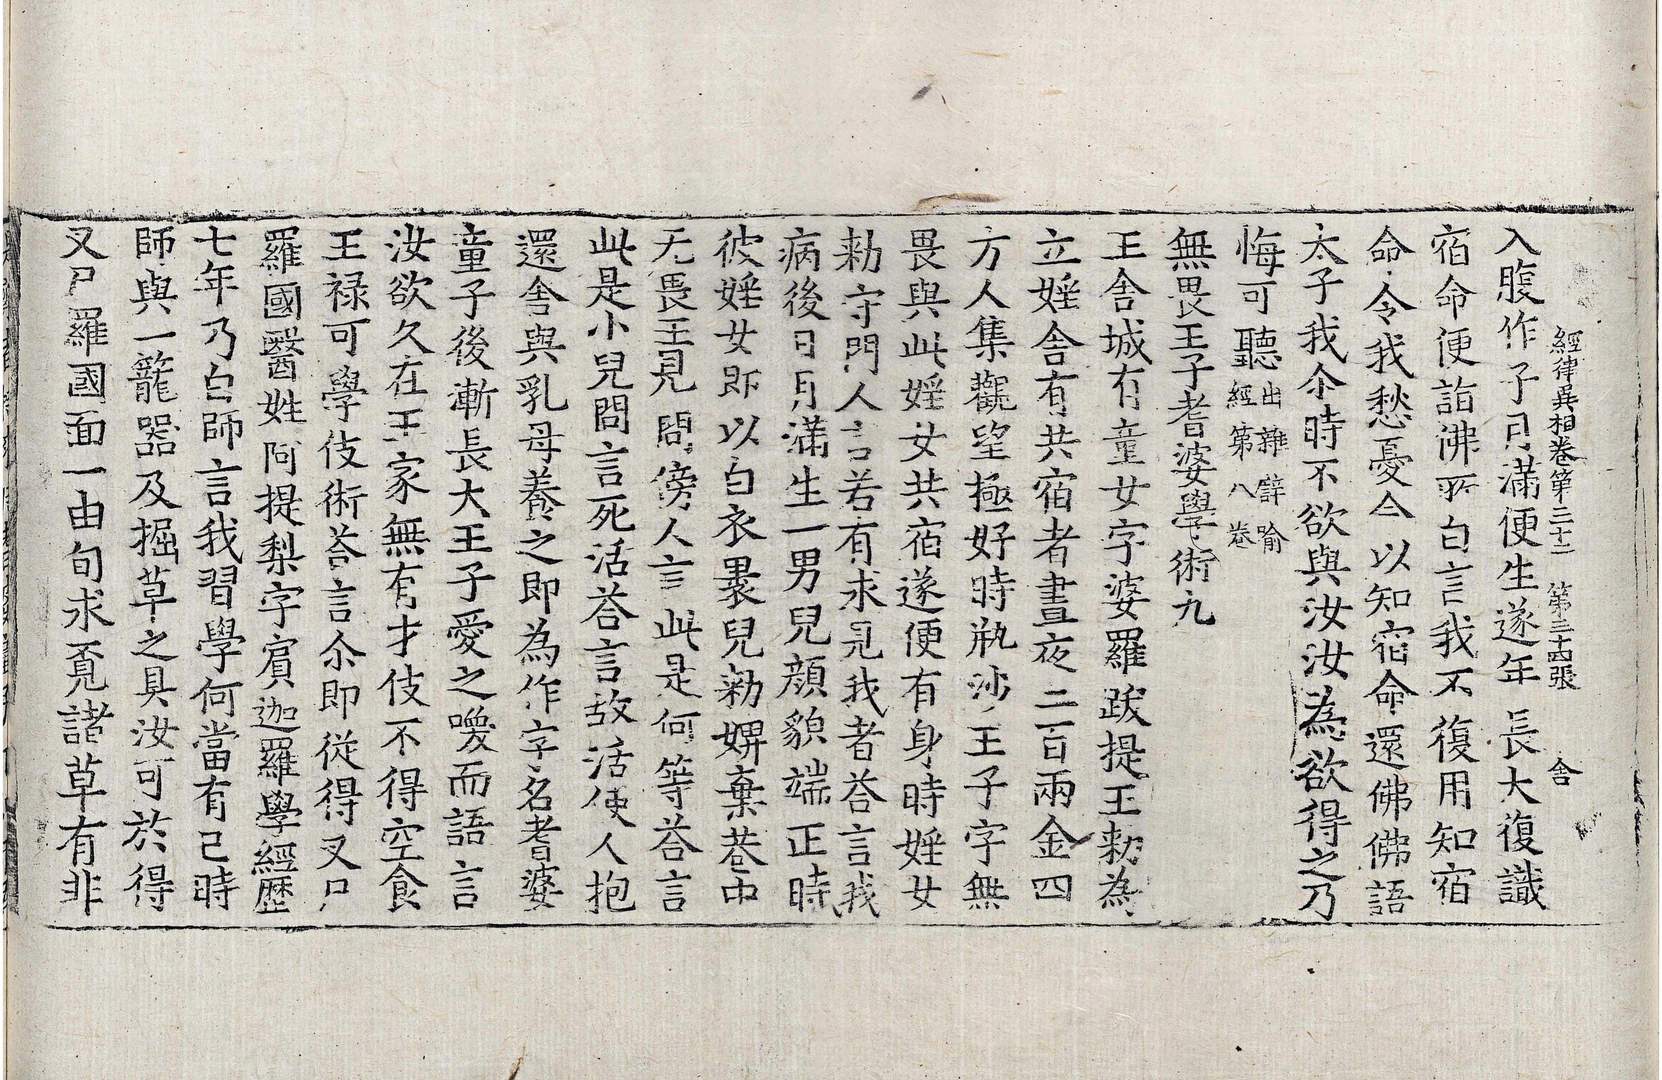 經律異相卷第三十二 第三十四張 舍
入腹作子月滿便生遂年長大復識
宿命便詣佛所白言我不復用知宿
命令我愁憂今以知宿命還佛佛語
太子我尒時不欲與汝汝為欲得之乃
悔可聽出雜譬喻經第八卷
無畏王子耆婆學術九
王舍城有童女字婆羅跋提王勑為
立婬舍有共宿者晝夜二百兩金四
方人集觀望極好時瓶沙王子字無
畏與此婬女共宿遂便有身時婬女
勑守門人言若有求見我者荅言我
病後日月滿生一男兒顏貌端正時
彼婬女即以白衣裹兒勑婢棄巷中
无畏王見問傍人言此是何等荅言
此是小兒問言死活荅言故活使人抱
還舍與乳母養之即為作字名耆婆
童子後漸長大王子愛之喚而語言
汝欲久在王家無有才伎不得空食
王禄可學伎術荅言尒即從得叉尸
羅國醫姓阿提梨字賓迦羅學經歷
七年乃白師言我習學何當有已時
師與一籠器及掘草之具汝可於得
叉尸羅國面一由旬求覓諸草有非